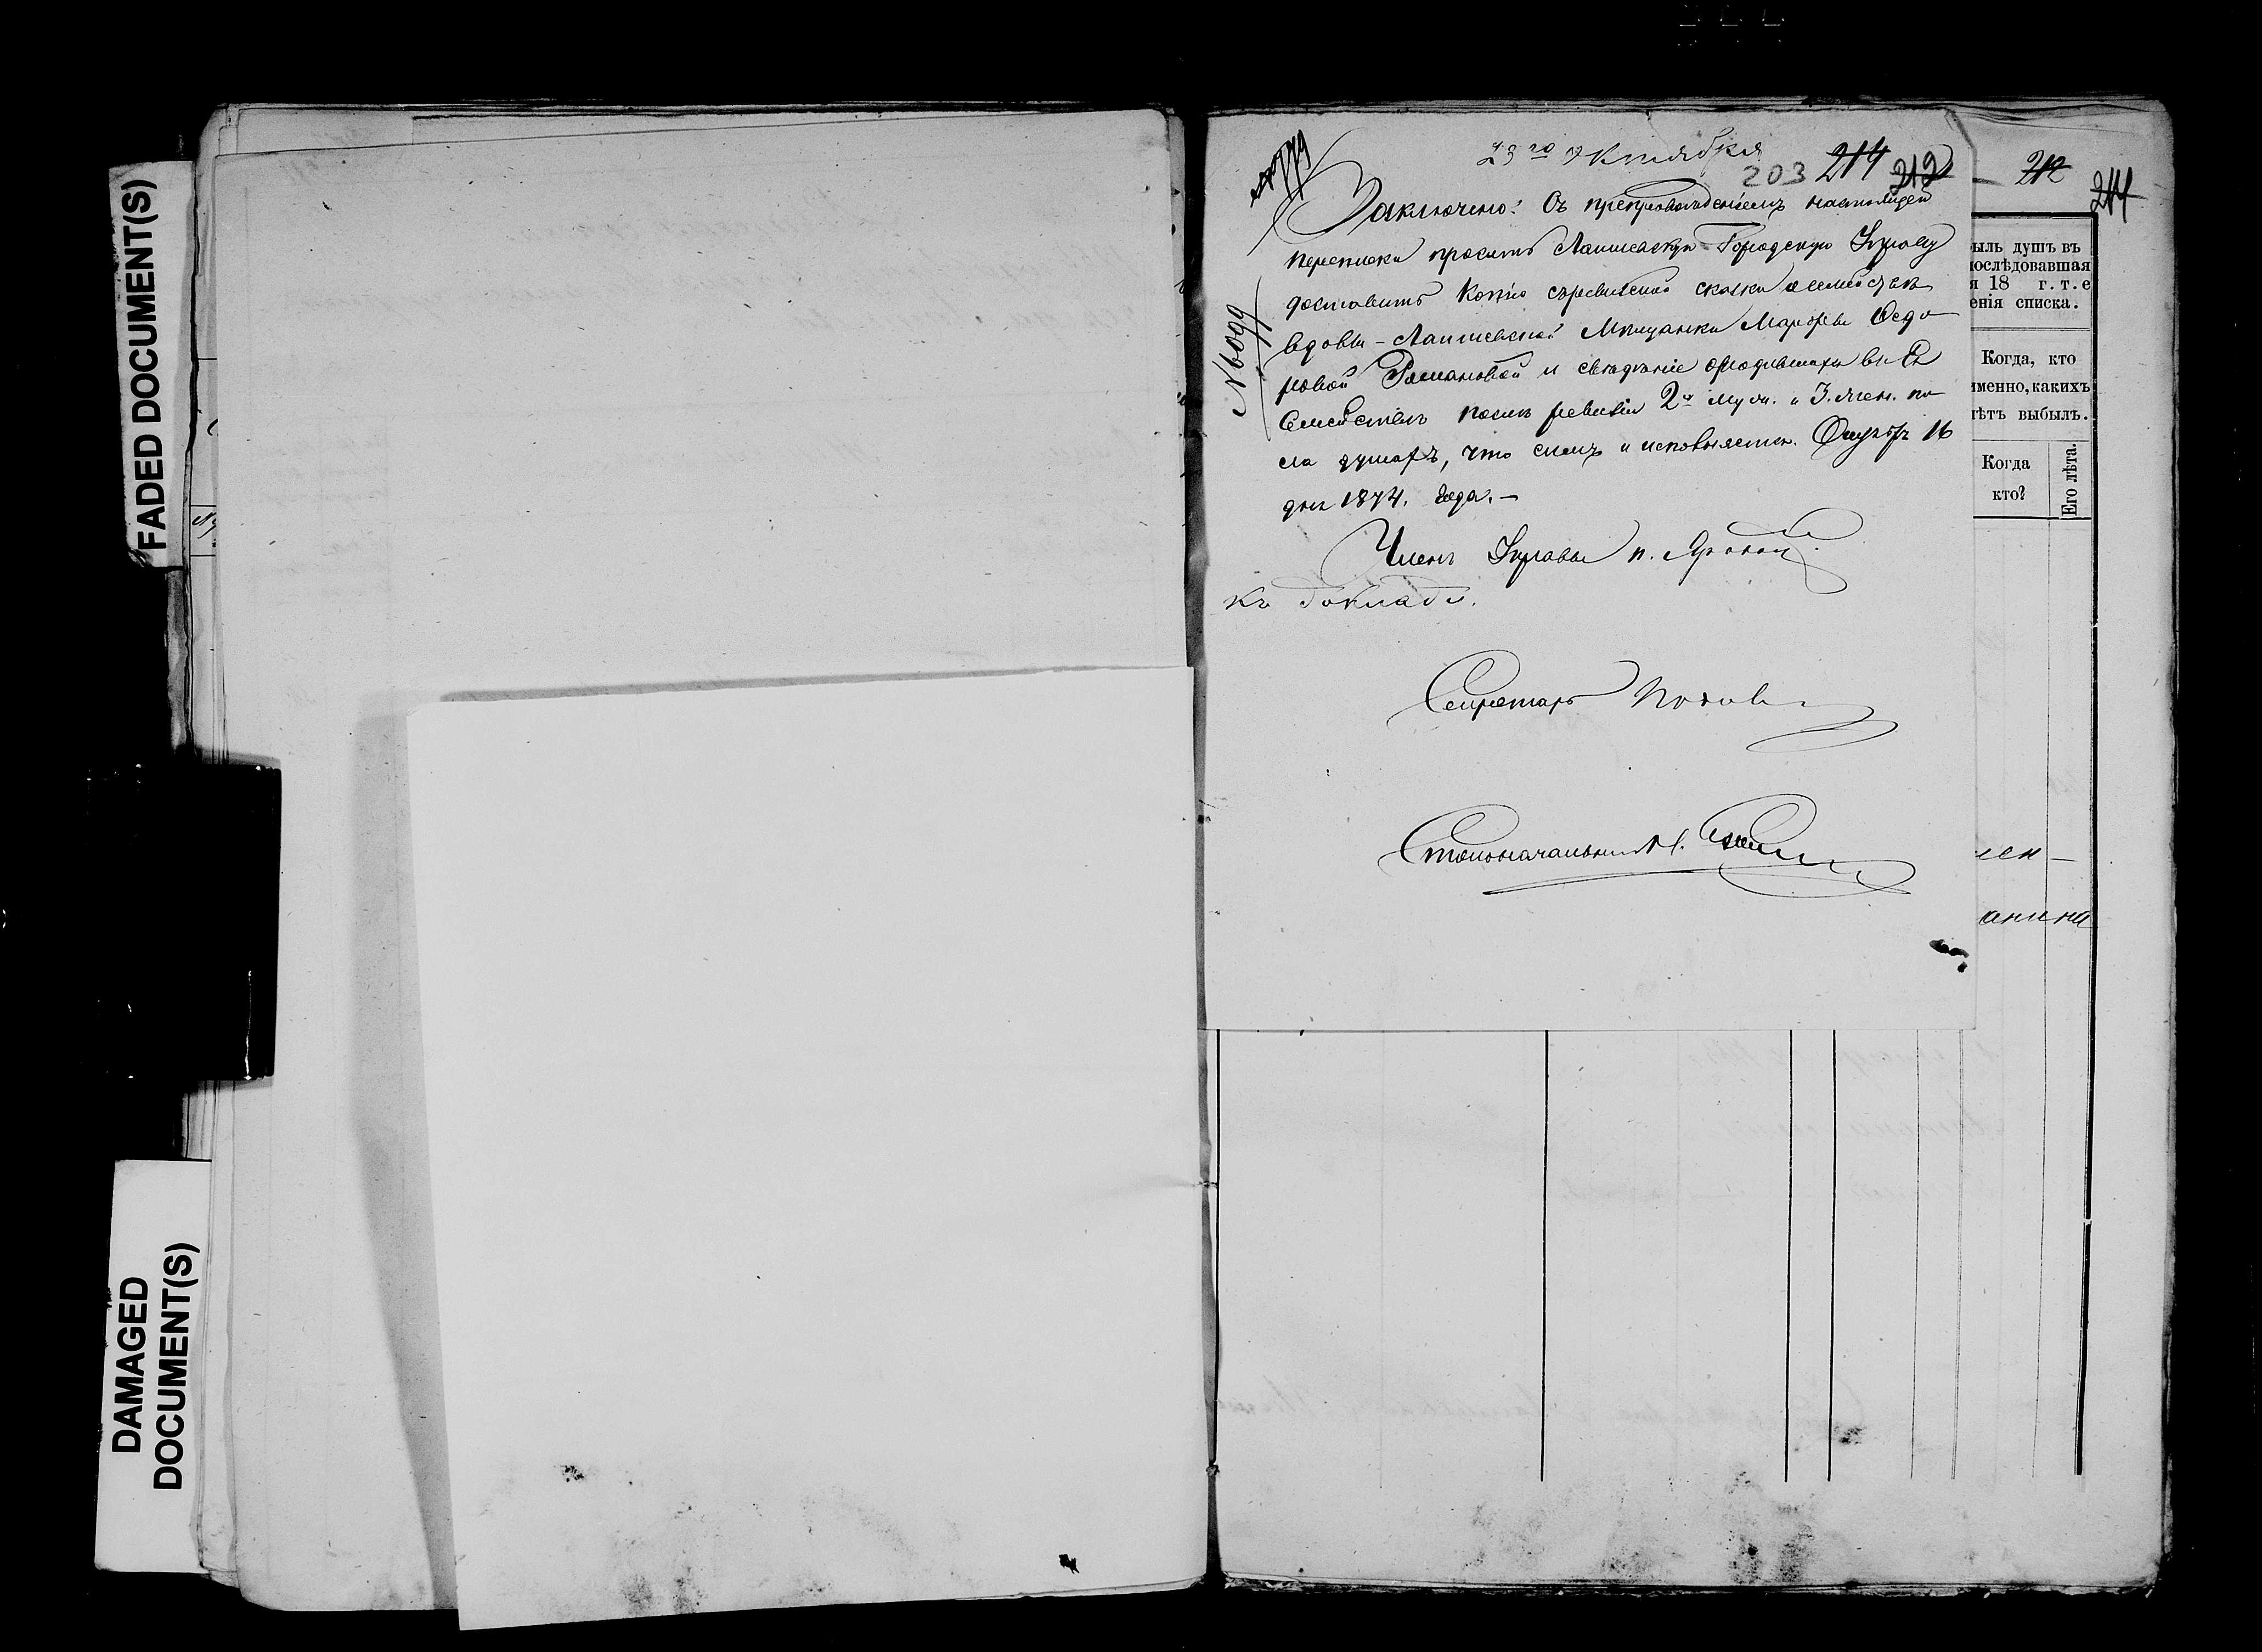 FADED DOCUMENT(S)
DAMAGED
DOCUMENT(S)
23го Октября
203 214 212
212
214
Заключено: Съ препровожденіемъ настоящей
переписки просить Лаишевскую Городскую Управу
доставить копію съ ревизской сказки о семействѣ
вдовы – Лаишевской Мѣщанки Марфы Ѳедо
ровой Романовой и свѣдѣніе о родившихся въ Ея
Семействѣ послѣ ревизіи 2х муж. и 3. жен. по
ла душахъ, что симъ и исполняется. Октябр 16
дня 1874. Года. –
№ 6099
Членъ Управы
Къ докладу.
Секретарь Попов
Столоначальникъ
ыль душъ въ
послѣдовавшая
я 18 г. т. е
енія списка.
Когда, кто
именно, какихъ
лѣтъ выбылъ.
Когда
кто?
Его лѣта.
анина